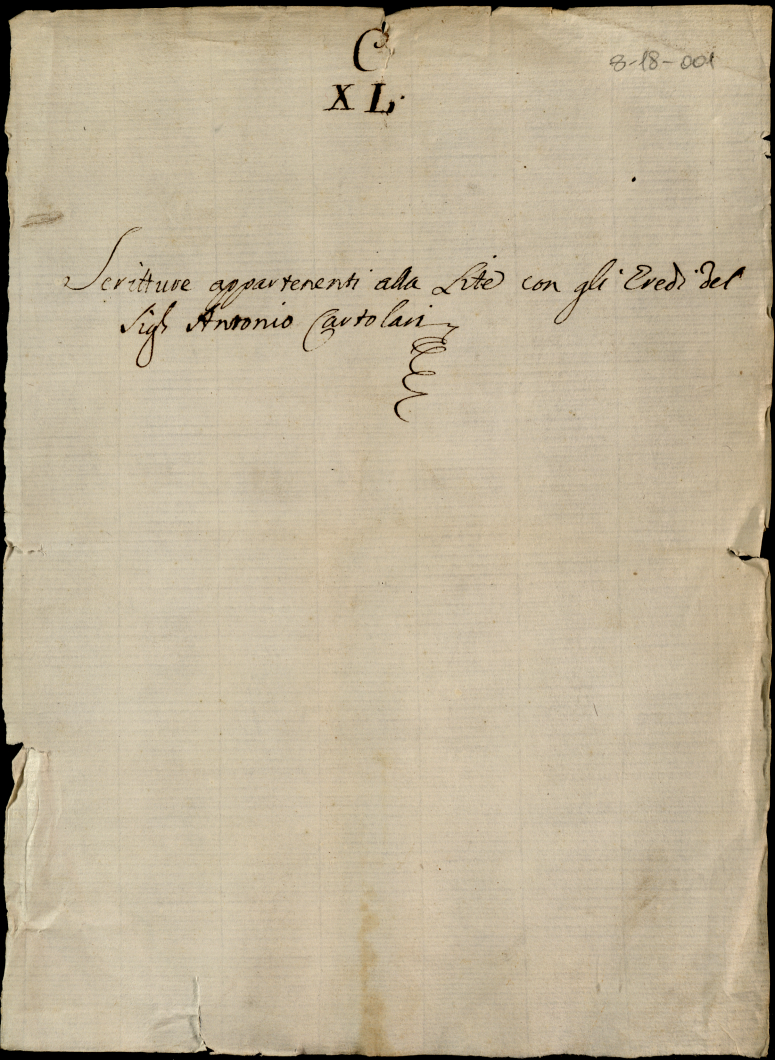 C
8-18-001
XL.
Scritture appartenenti alla Lite con gli Eredi del
Sigr Antonio Cartolari